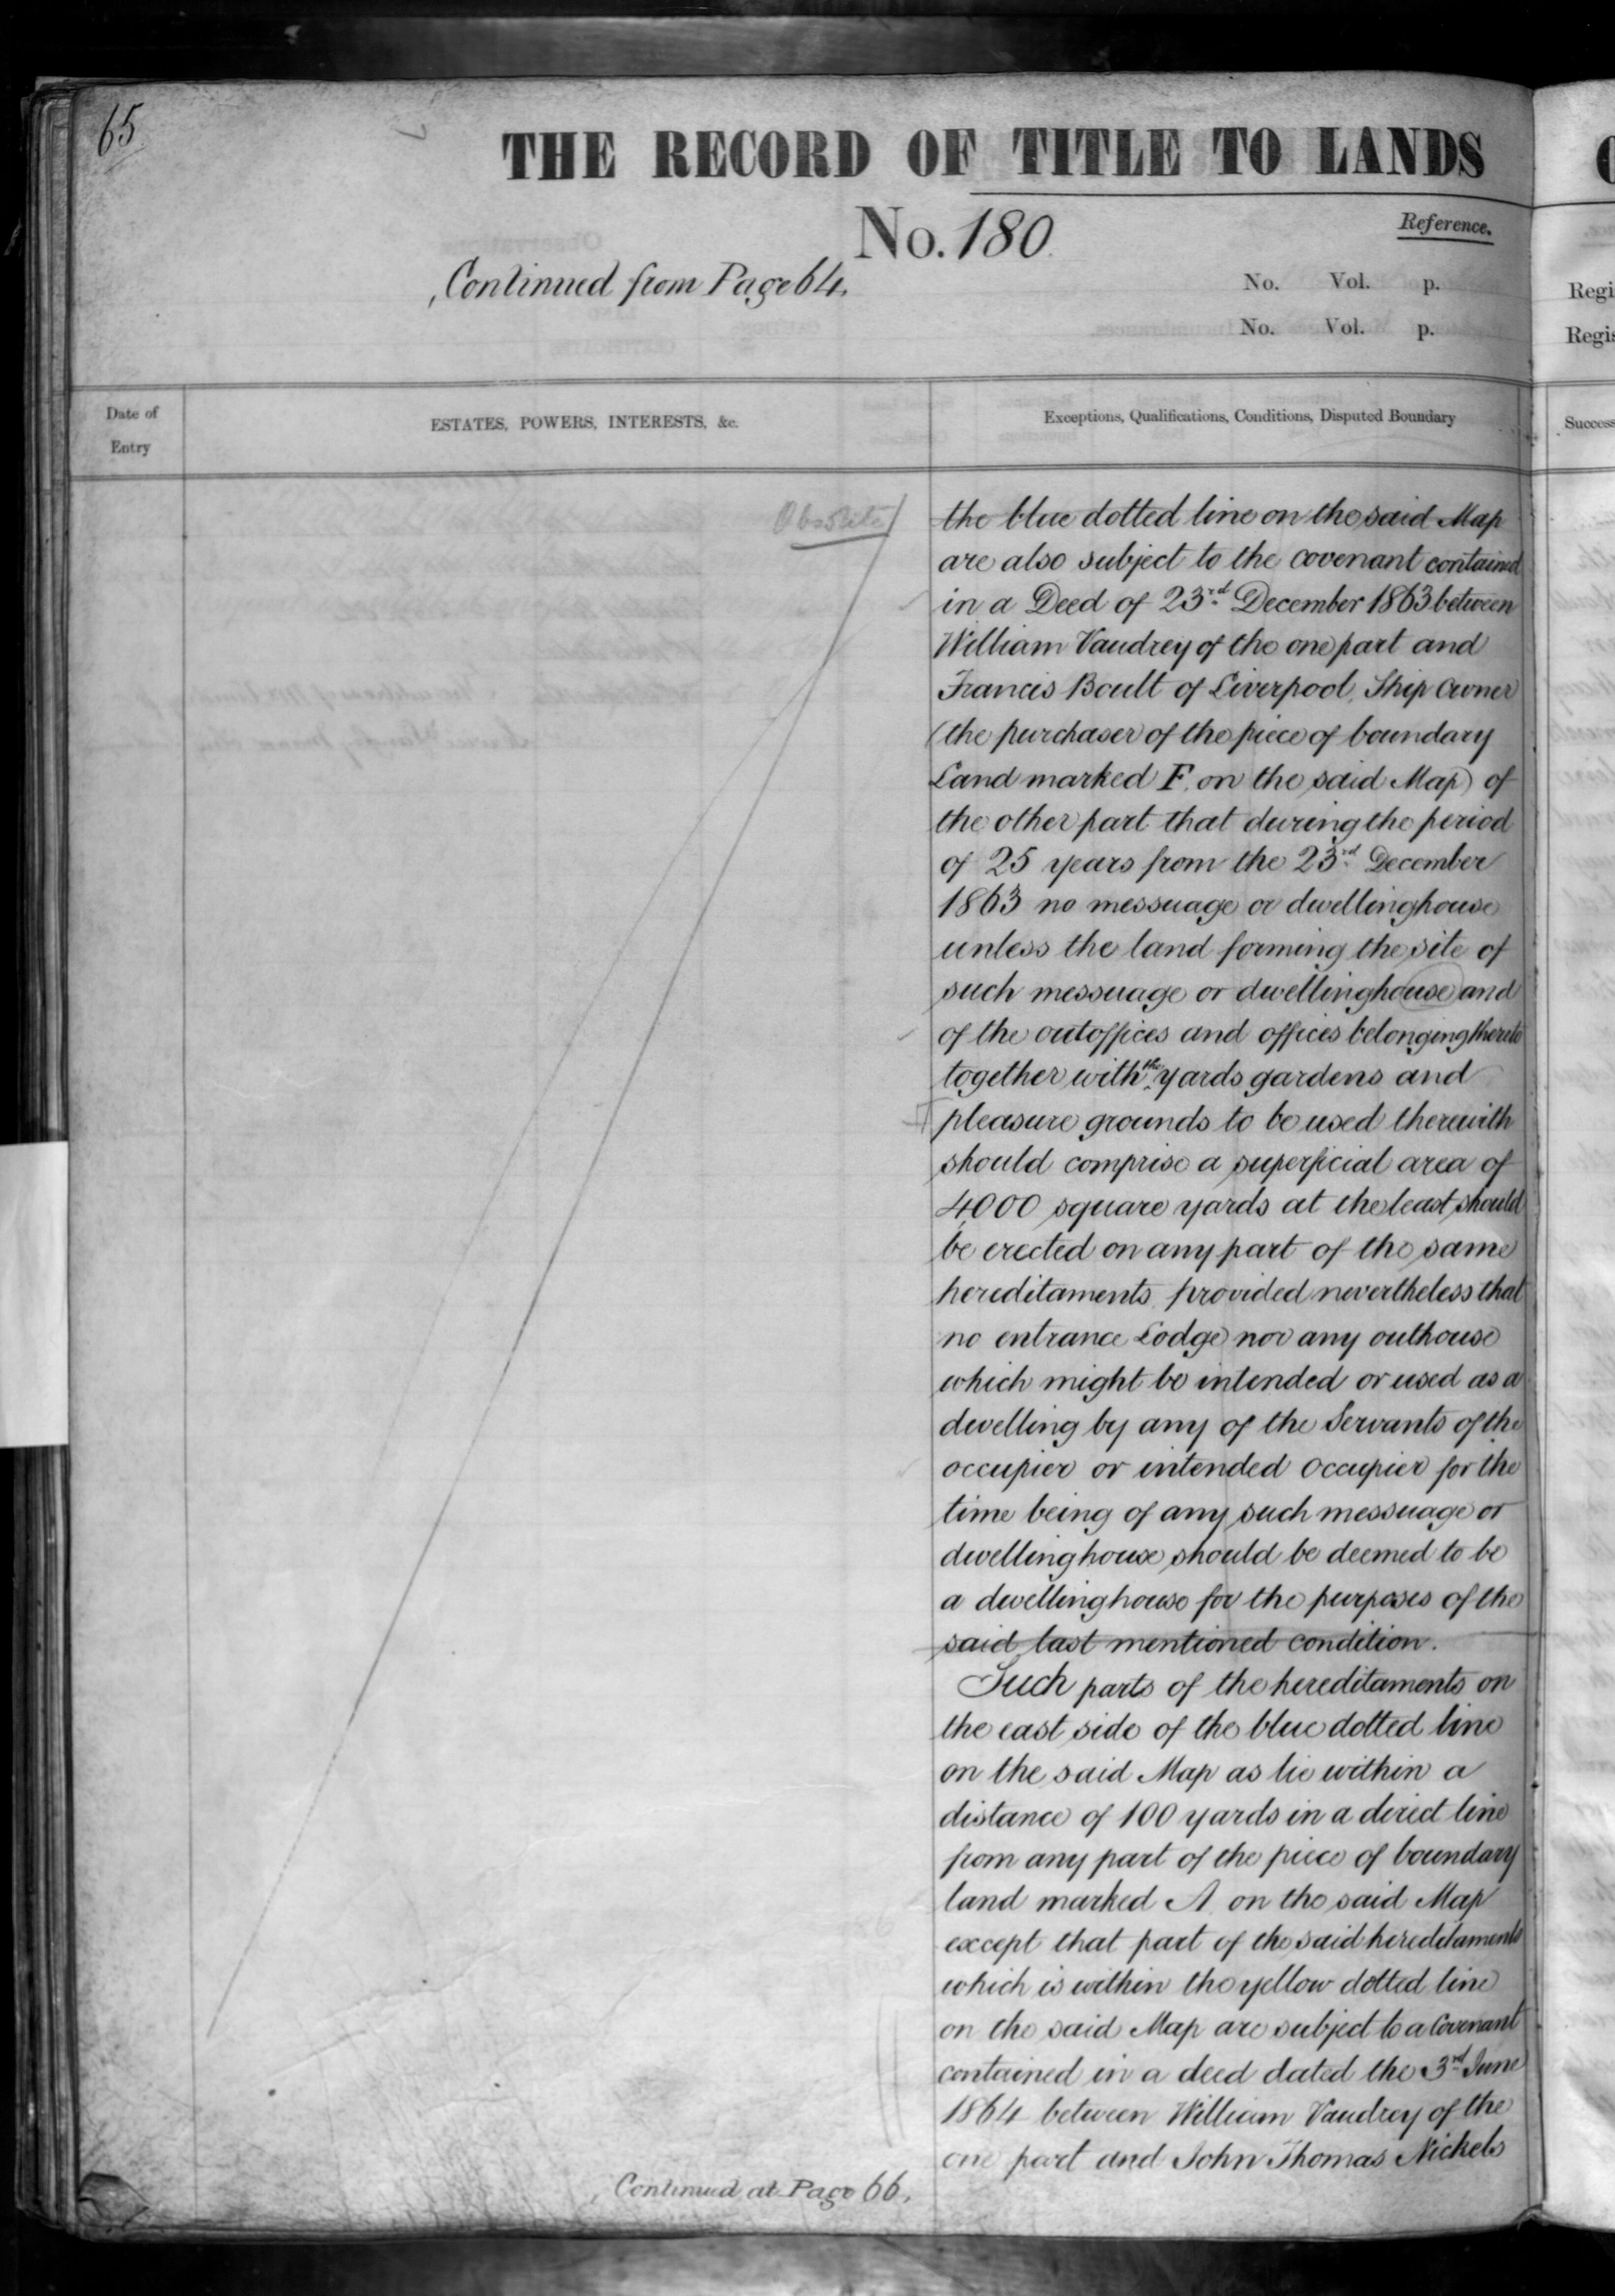 65
THE RECORD OF TITLE TO LANDS
No. 180.
Reference.
Continued from Page 64.
No. Vol. p.
No. Vol. p.
Regi
Regis
Date of
Entry
ESTATES, POWERS, INTERESTS, &c.
Exceptions, Qualifications, Conditions, Disputed Boundary
Success
Obsolete
the blue dotted line on the said Map
are also subject to the covenant contained
in a Deed of 23rd December 1863 between
William Vaudrey of the one part and
Francis Boult of Liverpool, Ship Owner
(the purchaser of the piece of boundary
Land marked F. on the said Map) of
the other part that during the period
of 25 years from the 23rd December
1863 no messuage or dwellinghouse
unless the land forming the site of
such messuage or dwellinghouse and
of the outoffices and offices belonging thereto
together with the yards gardens and
pleasure grounds to be used therewith
should comprise a superficial area of
4000 square yards at the least should
be erected on any part of the same
hereditaments provided nevertheless that
no entrance Lodge nor any outhouse
which might be intended or used as a
dwelling by any of the Servants of the
occupier or intended occupier for the
time being of any such messuage or
dwellinghouse should be deemed to be
a dwellinghouse for the purposes of the
said last mentioned condition.
Such parts of the hereditaments on
the east side of the blue dotted line
on the said Map as lie within a
distance of 100 yards in a direct line
from any part of the piece of boundary
land marked A. on the said Map
except that part of the said hereditaments
which is within the yellow dotted line
on the said Map are subject to a Covenant
contained in a deed dated the 3rd June
1864 between William Vaudrey of the
one part and John Thomas Nickels
Continued at Page 66.